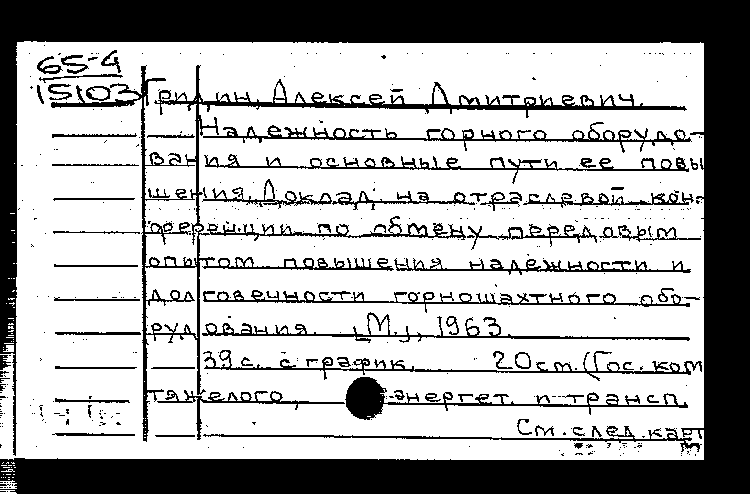 65-4
15103
Гридин, Алексей Дмитриевич.
Надежность горного оборудо-
вания и основные пути ее повы
шения. Доклад на отраслевой кон-
ференции по обмену передовым
опытом повышения надежности и
долговечности горношахтного обо-
рудования. [М.], 1963.
39 с. с график. 20 см. (Гос. ком
тяжелого, энергет. и трансп.
См. след. карт